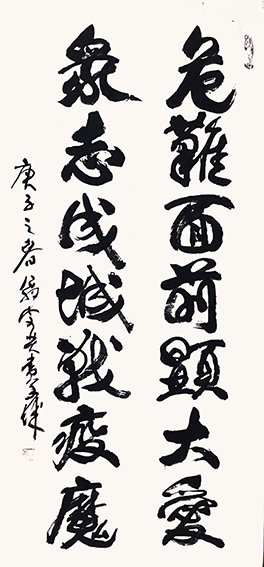 危難面前顯大愛
眾志成城戰疫魔
庚子之春